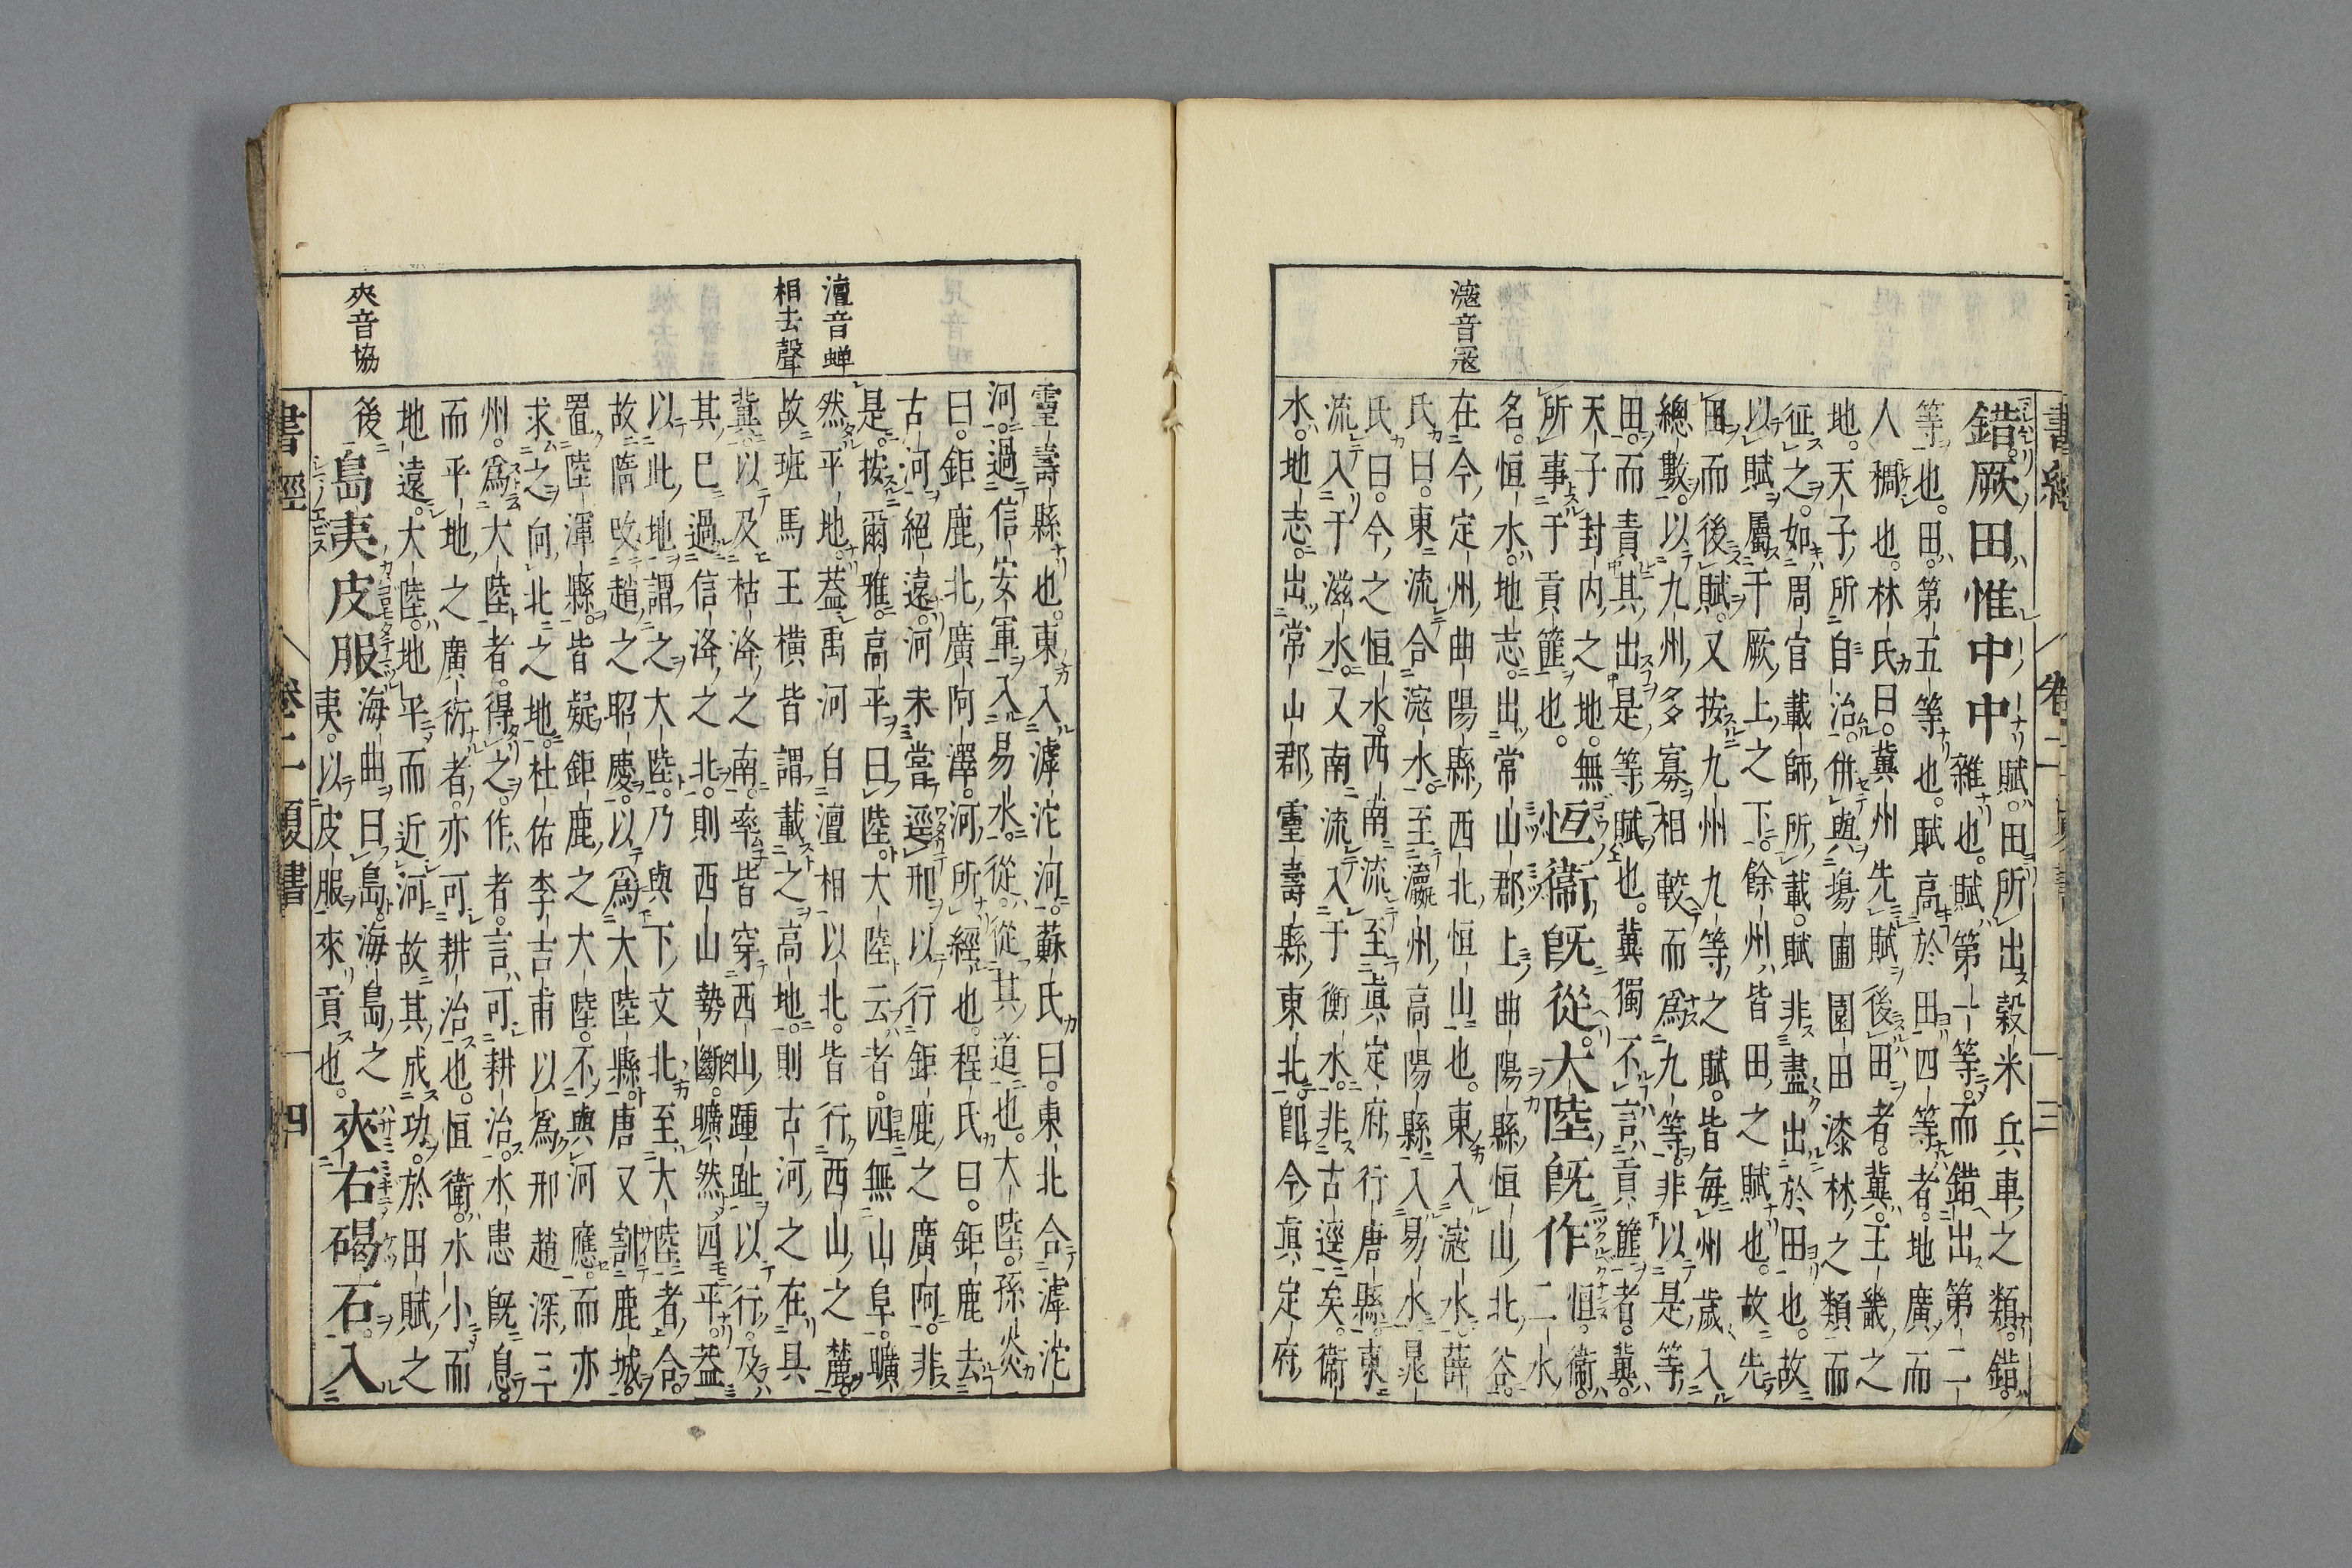 滱音㓂
錯厥田惟中中賦田所出穀米兵車之類錯
雜也賦第一等而錯出第二
等也田第五等也賦高於田四等者地廣而
人稠也林氏曰冀州先賦後田者冀王畿之
地天子所自治併與場圃園田漆林之類而
征之如周官載師所載賦非盡出於田也故
以賦屬于厥土之下餘州皆田之賦也故先
田而後賦又按九州九等之賦皆每州歲入
總數以九州多寡相較而爲九等非以是等
田而責其出是等賦也冀獨不言貢篚者冀
天子封内之地無
所事于貢篚也恒衞旣從大陸旣作恒衞二水
名恒水地志出常山郡上曲陽縣恒山北谷
在今定州曲陽縣西北恒山也東入滱水薛
氏曰東流合滱水至瀛州高陽縣入易水晁
氏曰今之恒水西南流至眞定府行唐縣東
流入于滋水又南流入于衡水非古逕矣衞
水地志出常山郡靈壽縣東北卽今眞定府
書經 卷二 夏書 三
澶音蟬
相去聲
夾音協
靈壽縣也東入滹沱河蘇氏曰東北合滹沱
河過信安軍入易水從從其道也大陸孫炎
曰鉅鹿北廣阿澤河所經也程氏曰鉅鹿去
古河絕遠河未嘗逕邢以行鉅鹿之廣阿非
是按爾雅高平曰陸大陸云者四無山阜曠
然平地蓋禹河自澶相以北皆行西山之麓
故班馬王横皆謂載之高地則古河之在貝
冀以及枯洚之南率皆穿西山踵趾以行及
其已過信洚之北則西山勢斷曠然四平蓋
以此地謂之大陸乃與下文北至大陸者合
故隋改趙之昭慶以爲大陸縣唐又割鹿城
置陸渾縣皆疑鉅鹿之大陸不與河應而亦
求之向北之地杜佑李吉甫以爲邢趙深三
州爲大陸者得之作者言可耕治水患旣息
而平地之廣衍者亦可耕治也恒衞水小而
地遠大陸地平而近河故其成功於田賦之
後島夷皮服海曲曰島海島之
夷以皮服來貢也夾右碣石入
書經 卷二 夏書 四